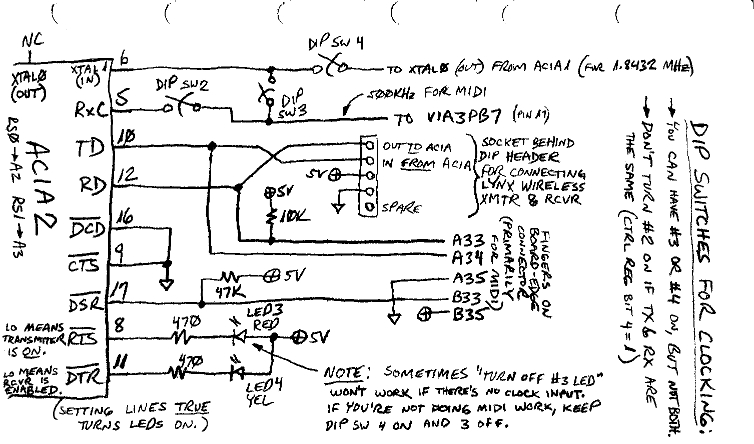 NC
XTALØ
(OUT)
XTAL1
(IN)
6
DIP SW 4
TO XTALØ (OUT) FROM ACIA1 (FOR 1.8432 MHz)
RxC
5
DIP SW2
DIP
SW3
500KHz FOR MIDI
TO VIA3PB7 (PIN 17)
ACIA2
RSØ→A2 RS1→A3
TD
10
RD
12
OUT TO ACIA
IN FROM ACIA
5V
SPARE
SOCKET BEHIND
DIP HEADER
FOR CONNECTING
LYNX WIRELESS
XMTR & RCVR
5V
10K
DCD
16
CTS
9
A33
A34
A35
B33
B35
FINGERS ON
BOARD-EDGE
CONNECTOR
(PRIMARILY
FOR MIDI)
DSR
17
47K
5V
LO MEANS
TRANSMITTER
IS ON.
RTS
8
470
LED3
RED
5V
LO MEANS
RCVR IS
ENABLED.
DTR
11
470
LED4
YEL
(SETTING LINES TRUE
TURNS LEDS ON.)
NOTE: SOMETIMES "TURN OFF #3 LED"
WON'T WORK IF THERE'S NO CLOCK INPUT.
IF YOU'RE NOT DOING MIDI WORK, KEEP
DIP SW 4 ON AND 3 OFF.
DIP SWITCHES FOR CLOCKING:
→ YOU CAN HAVE #3 OR #4 ON, BUT NOT BOTH.
→ DON'T TURN #2 ON IF TX & RX ARE
THE SAME (CTRL REG BIT 4=1)